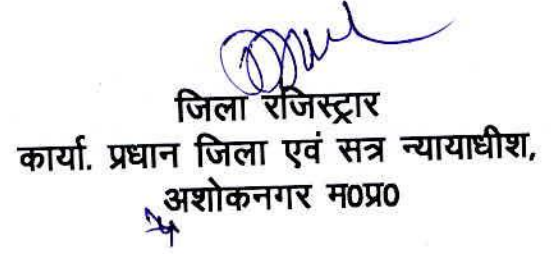 जिला रजिस्ट्रार
कार्या. प्रधान जिला एवं सत्र न्यायाधीश,
अशोकनगर म0प्र0